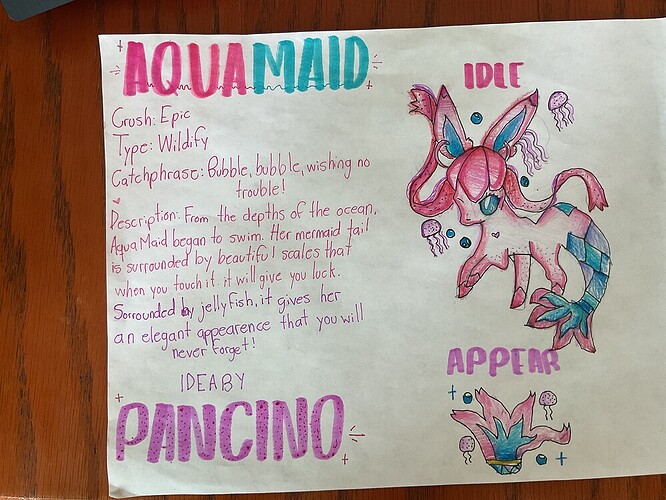 AQUAMAID
Crush: Epic
Type: Wildify
Catchphrase: Bubble, bubble, wishing no
trouble!
Description: From the depths of the ocean,
AquaMaid began to swim. Her mermaid tail
is surrounded by beautiful scales that
when you touch it. it will give you luck.
Sorrounded by jellyfish, it gives her
an elegant appearence that you will
never forget!
IDEA BY
PANCINO
IDLE
APPEAR